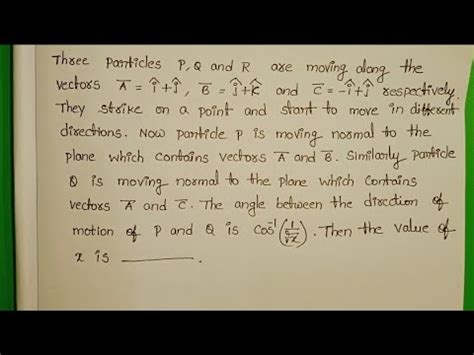 Three Particles P, Q and R are moving along the
vectors A̅ = î+ĵ, B̅ = ĵ+k̂ and C̅ = -î+ĵ respectively.
They strike on a point and start to move in different
directions. Now particle P is moving normal to the
plane which contains vectors A̅ and B̅. Similarly particle
Q is moving normal to the plane which contains
vectors A̅ and C̅. The angle between the direction of
motion of P and Q is Cos⁻¹(1/√x). Then the value of
x is ______.